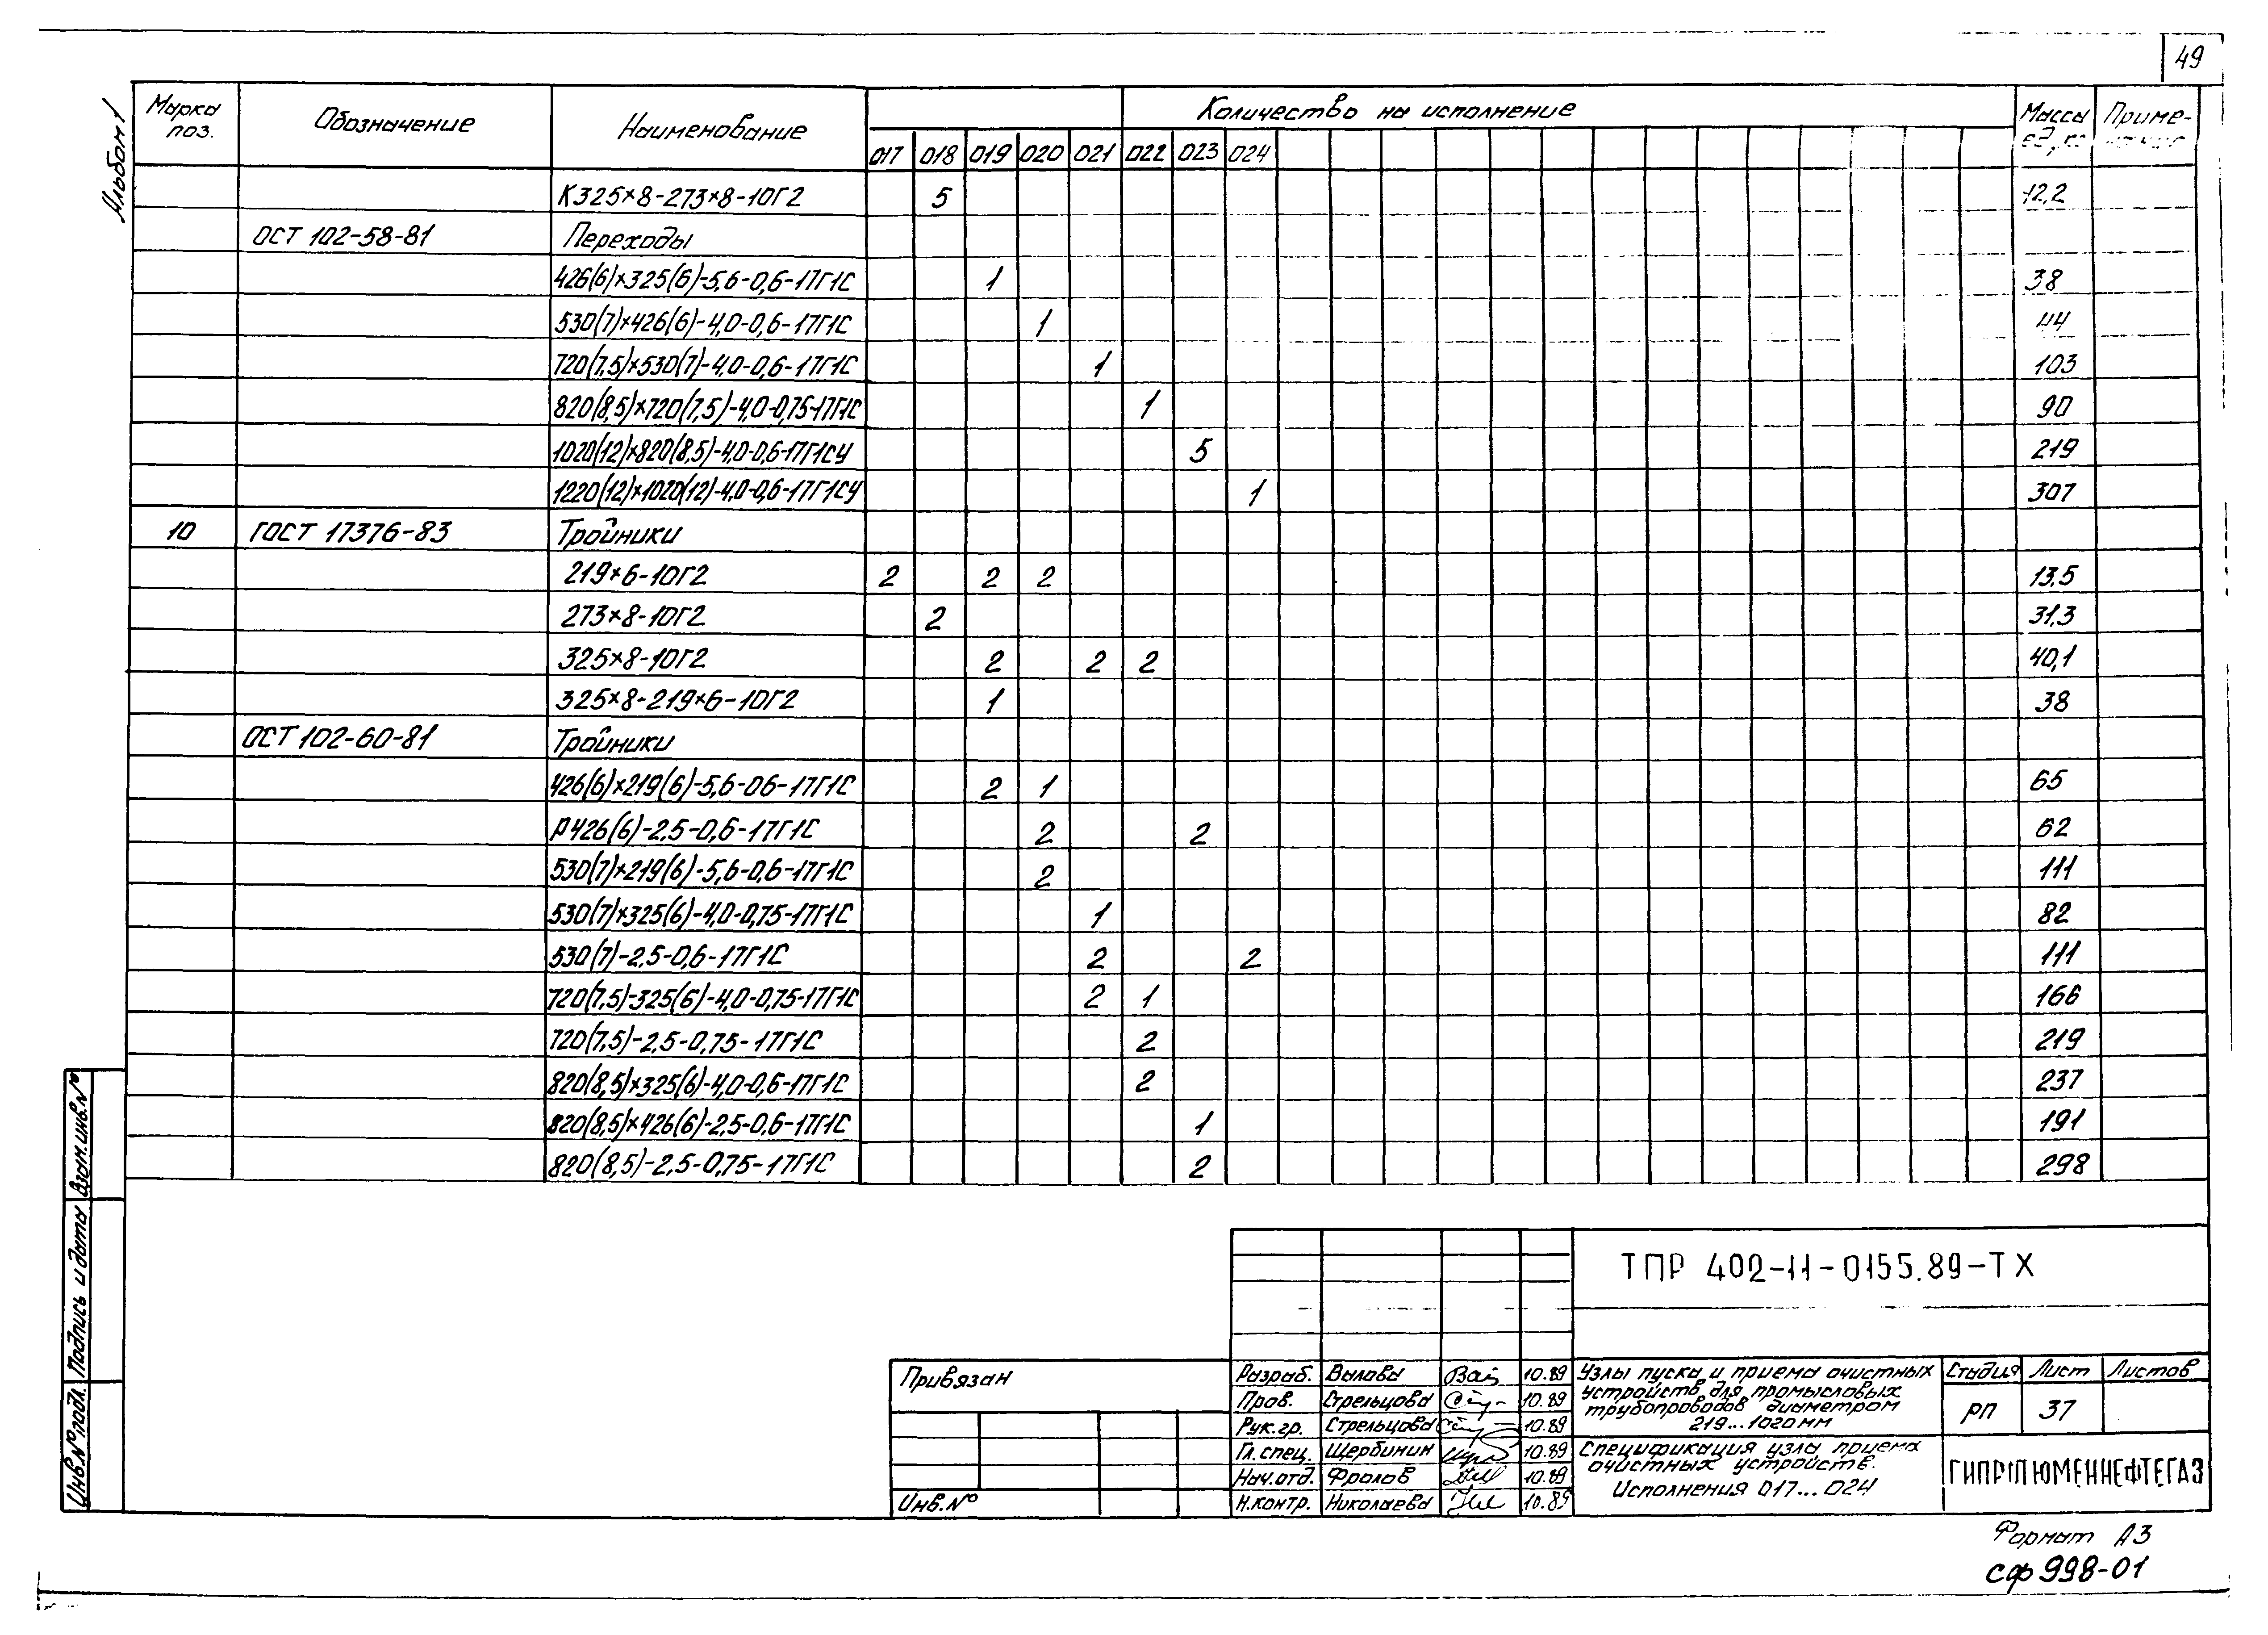 49
Альбом 1
Марка поз. Обозначение Наименование Количество на исполнение Масса ед, кг Приме-
017 018 019 020 021 022 023 024
К325×8-273×8-10Г2 5 12,2
ОСТ 102-58-81 Переходы
426(6)×325(6)-5,6-0,6-17Г1С 1 38
530(7)×426(6)-4,0-0,6-17Г1С 1 44
720(7,5)×530(7)-4,0-0,6-17Г1С 1 103
820(8,5)×720(7,5)-4,0-0,75-17Г1С 1 90
1020(12)×820(8,5)-4,0-0,6-17Г1СУ 5 219
1220(12)×1020(12)-4,0-0,6-17Г1СУ 1 307
10 ГОСТ 17376-83 Тройники
219×6-10Г2 2 2 2 13,5
273×8-10Г2 2 31,3
325×8-10Г2 2 2 2 40,1
325×8-219×6-10Г2 1 38
ОСТ 102-60-81 Тройники
426(6)×219(6)-5,6-06-17Г1С 2 1 65
Р426(6)-2,5-0,6-17Г1С 2 2 62
530(7)×219(6)-5,6-0,6-17Г1С 2 111
530(7)×325(6)-4,0-0,75-17Г1С 1 82
530(7)-2,5-0,6-17Г1С 2 2 111
720(7,5)-325(6)-4,0-0,75-17Г1С 2 1 166
720(7,5)-2,5-0,75-17Г1С 2 219
820(8,5)×325(6)-4,0-0,6-17Г1С 2 237
820(8,5)×426(6)-2,5-0,6-17Г1С 1 191
820(8,5)-2,5-0,75-17Г1С 2 298
Взам. инв. №
Подпись и дата
Инв. № подл.
ТПР 402-11-0155.89-ТХ
Привязан
Инв. №
Разраб. Валова 10.89
Пров. Стрельцова 10.89
Рук.гр. Стрельцова 10.89
Гл.спец. Щербинин 10.89
Нач.отд. Фролов 10.89
Н.контр. Николаева 10.89
Узлы пуска и приема очистных
устройств для промысловых
трубопроводов диаметром
219...1020мм
Стадия Лист Листов
РП 37
Спецификация узла приема
очистных устройств.
Исполнения 017...024
ГИПРОТЮМЕННЕФТЕГАЗ
Формат А3
сф 998-01